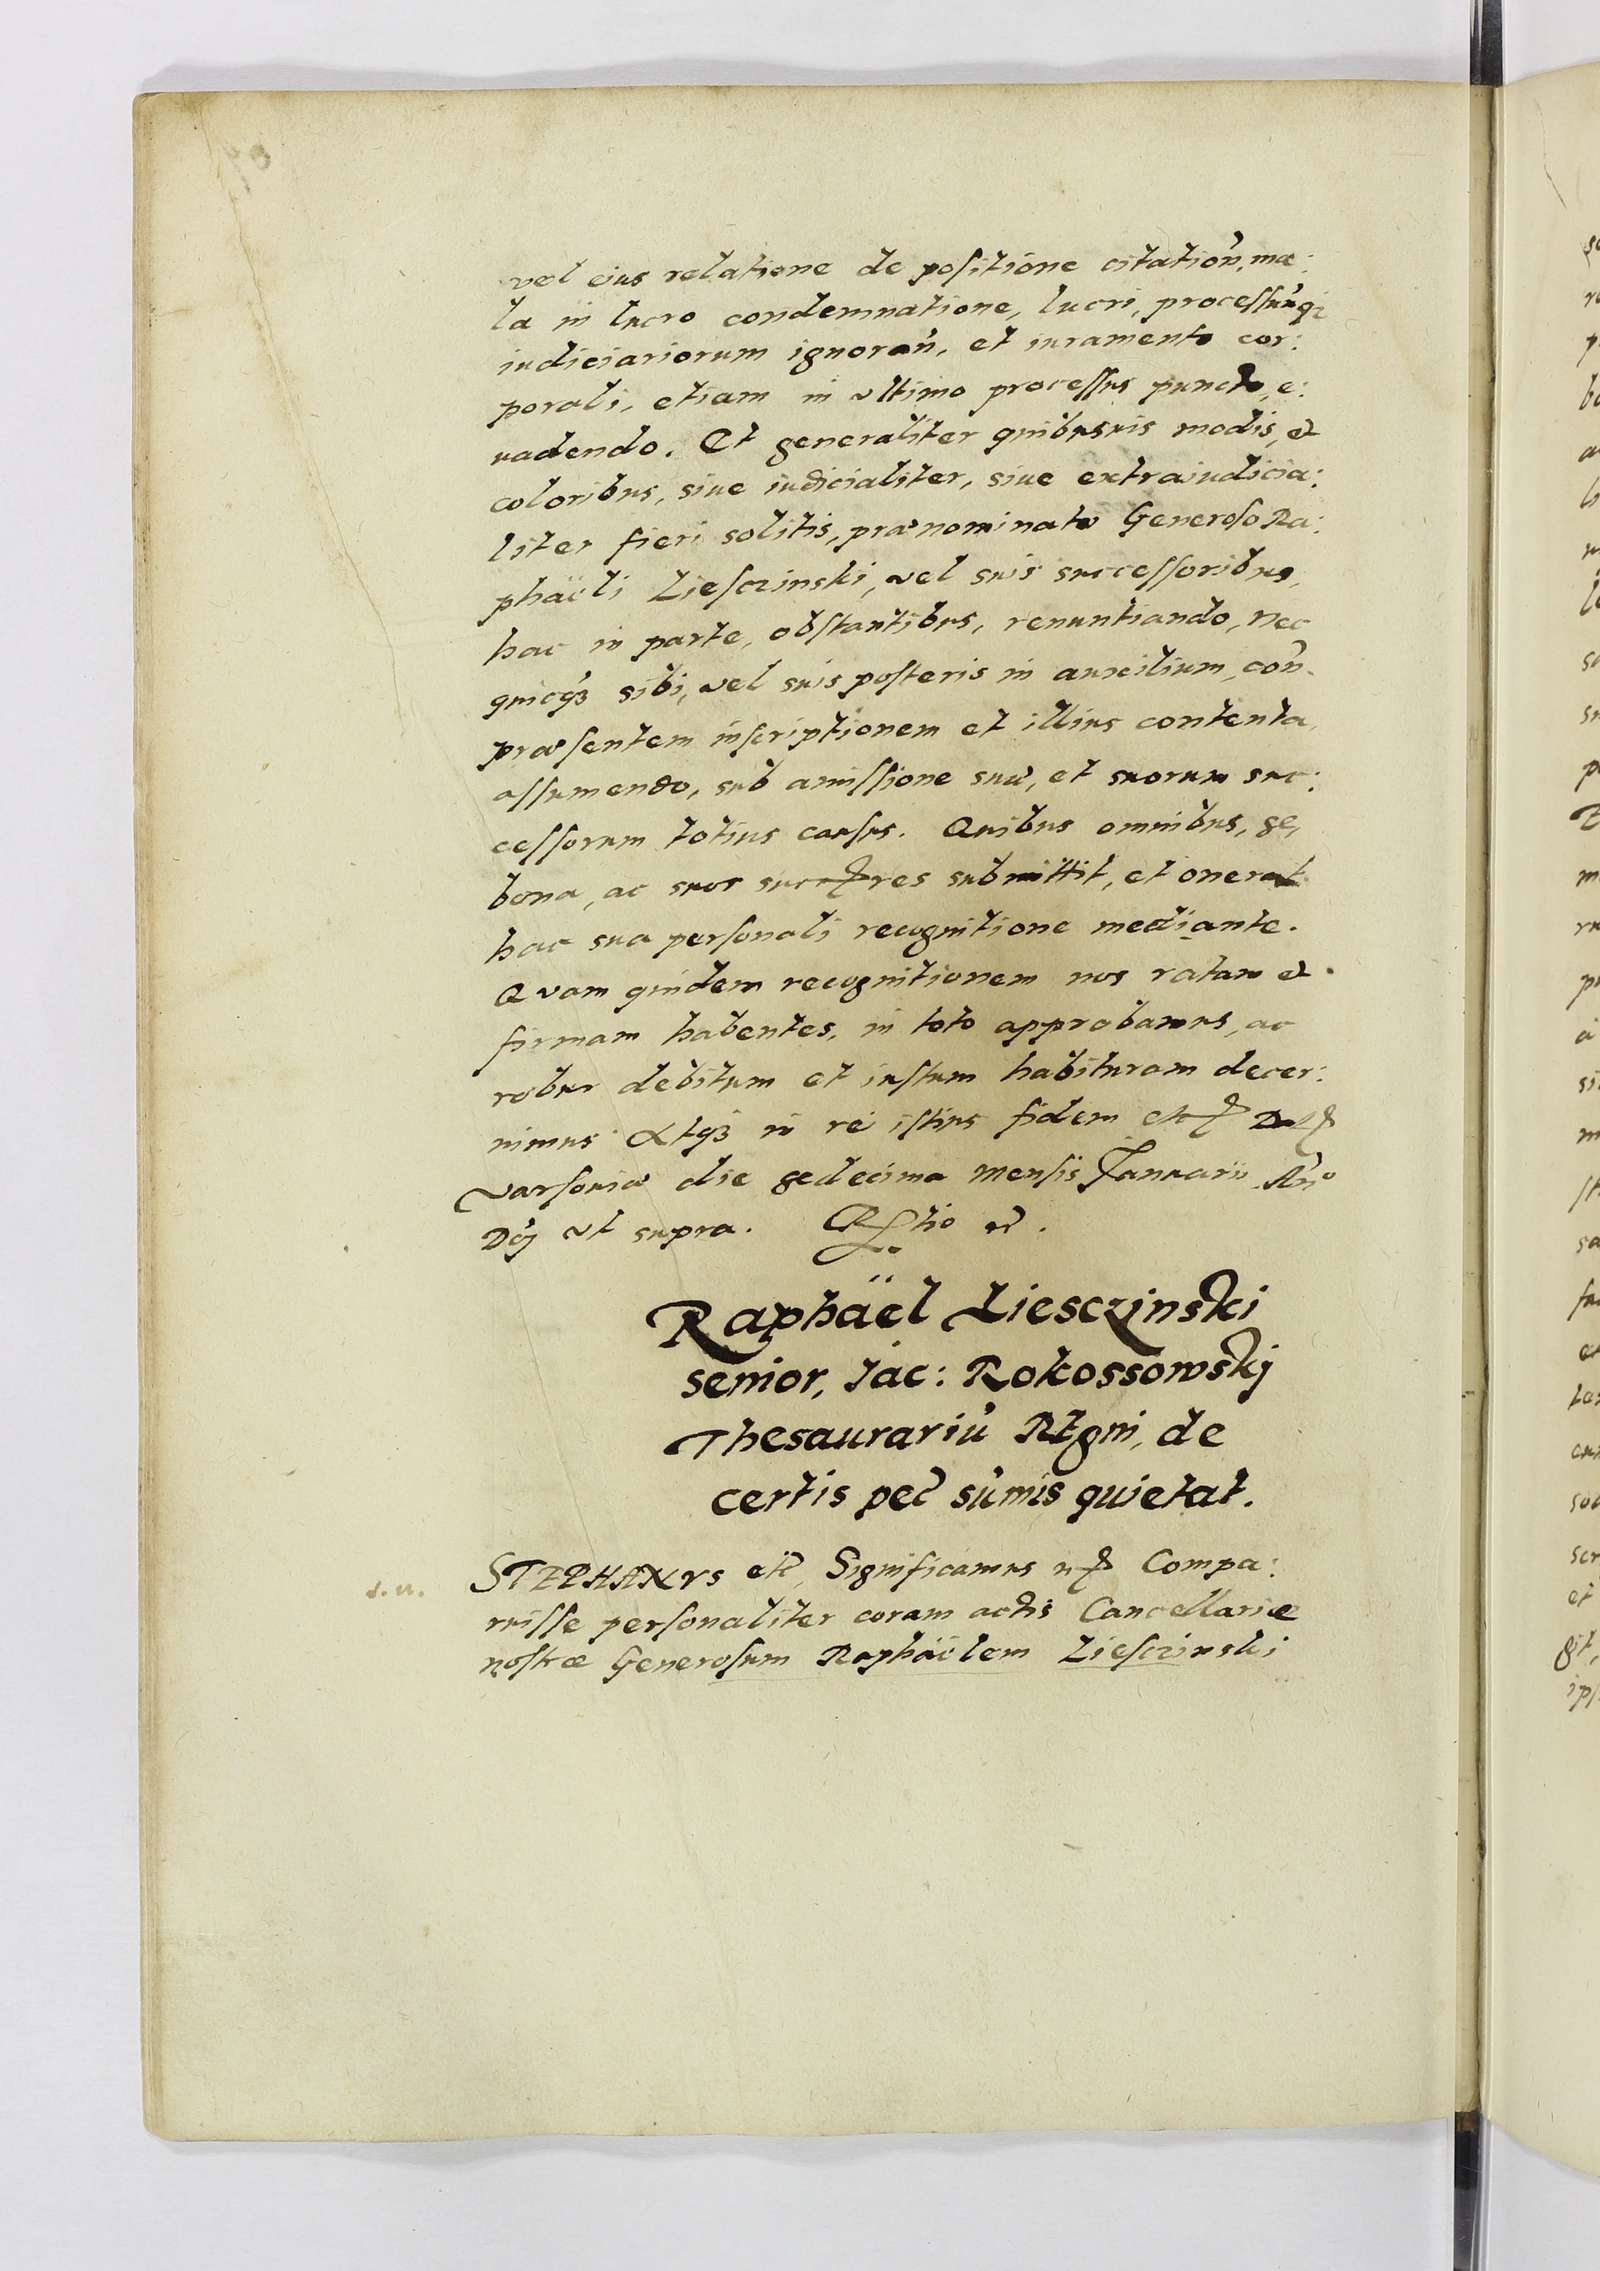 vel eius relatione de positione citation, ma:
la in lucro condemnatione, lucri, processuuq3
iudiciariorum ignoran, et iuramento cor:
porali, etiam in ultimo processus puncto, e:
uadendo. Et generaliter quibusuis modis, et
coloribus, siue iudicialiter, siue extraiudicia:
liter fieri solitis, prænominato Generoso Ra:
phaëli Liesczinski, vel suis successoribus,
hac in parte, obstantibus, renuntiando, nec
quicq3 sibi, vel suis posteris in auxilium, con
præsentem inscriptionem et illius contenta,
assumendo, sub amissione suæ, et suorum suc:
cessorum totius causæ. Quibus omnibus, se,
bona, ac suos successores submittit, et onerat
hac sua personali recognitione mediante.
Quam quidem recognitionem nos ratam et
firmam habentes, in toto approbamus, ac
robur debitum et iustum habituram decer:
nimus Atq3 in rei istius fidem etc Dat
Varsouiæ die sedecima mensis Januarii Ano
Dnj vt supra.
Raphaël Liesczinski
senior, Iac: Rokossowskj
Thesaurariu Regni, de
certis pec sumis quietat.
s. n. STEPHANVS etc, Significamus etc Compa:
ruisse personaliter coram actis Cancellariæ
nostræ Generosum Raphaëlem Liesczinski